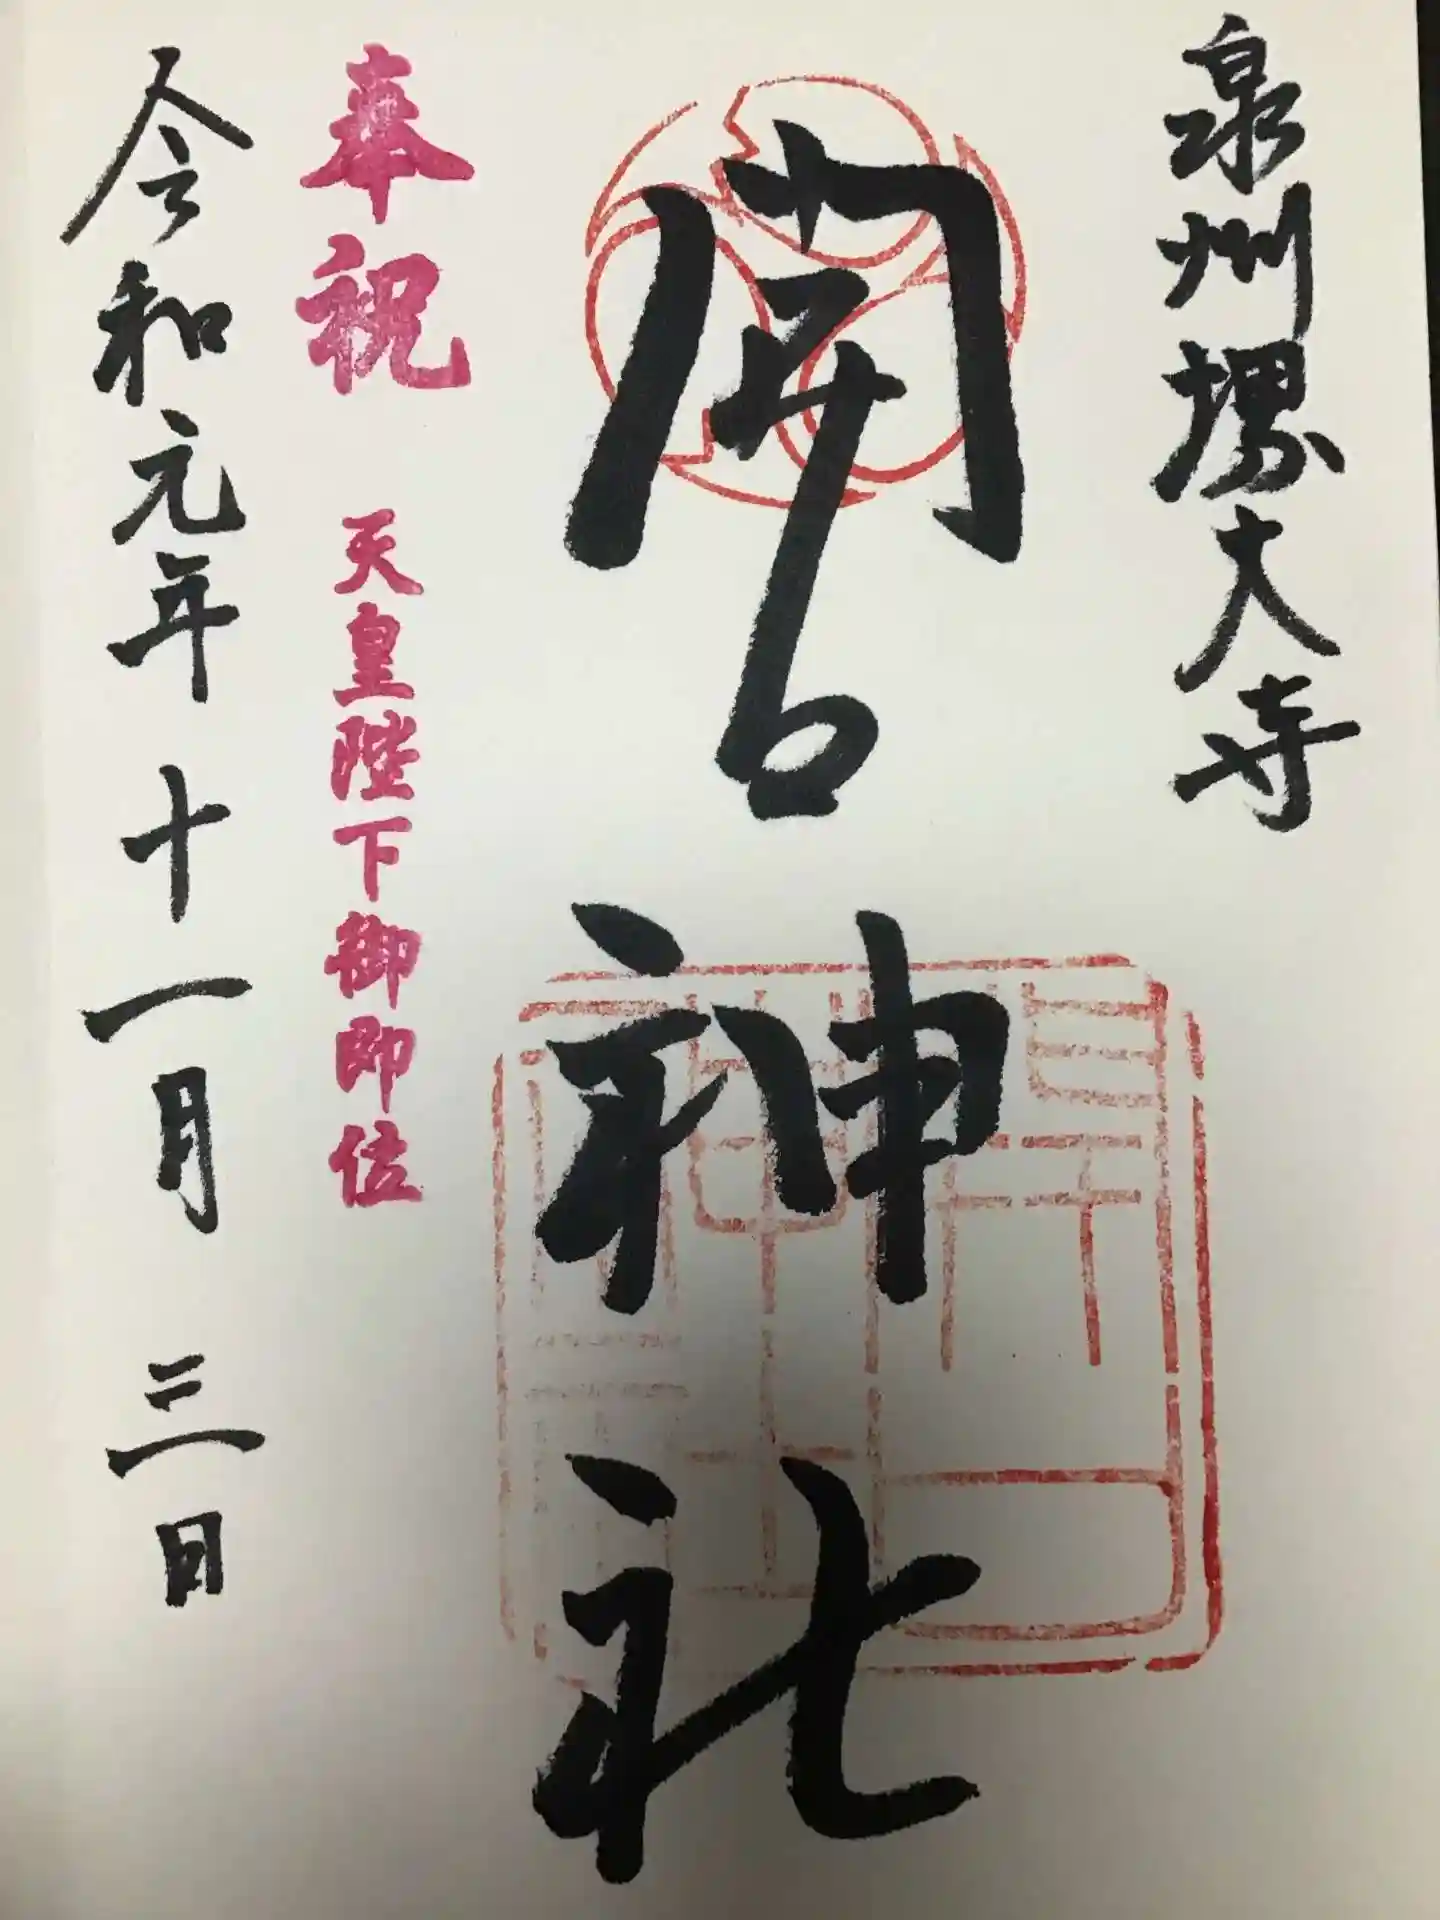 泉州堺大寺
開口神社
奉祝 天皇陛下御即位
令和元年十一月三日